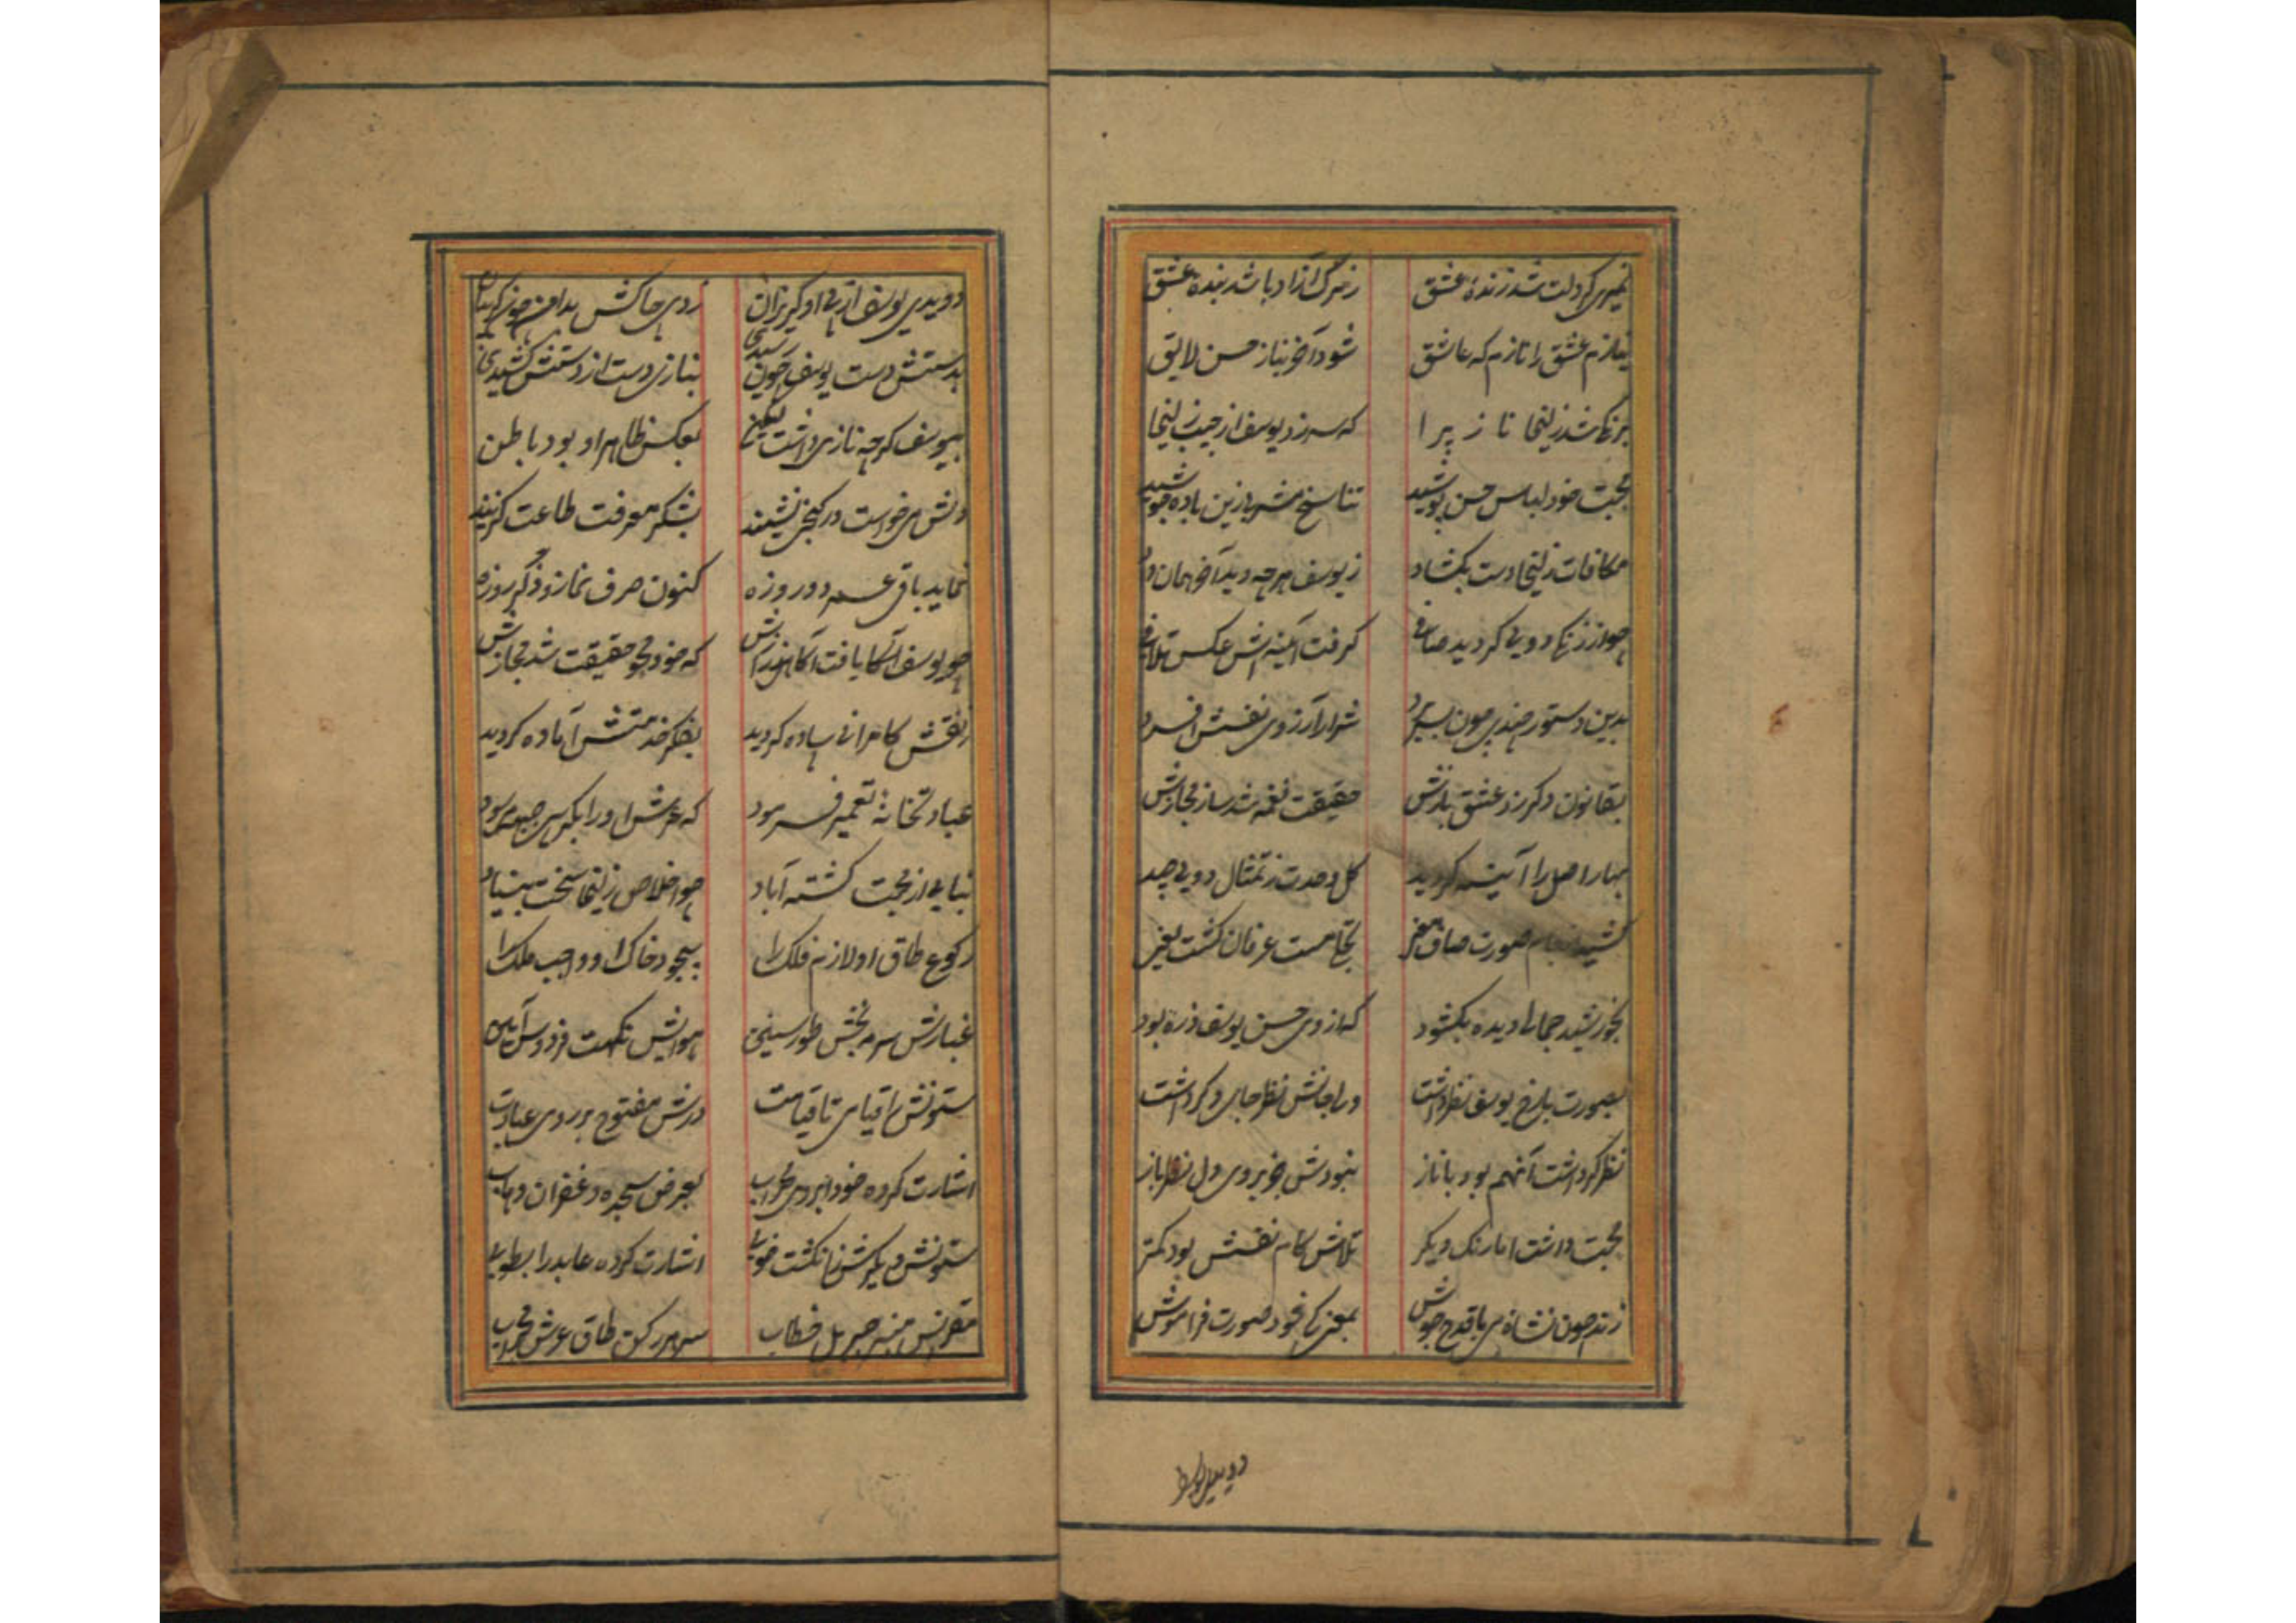 نمیری گر دلت شد زنده عشق ز مرگ آزاد باشد بنده عشق
بنازم عشق را نازم که عاشق شود آخر بناز حسن لایق
برنگی شد زلیخا ناز پیرا که سر زد یوسف از جیب زلیخا
محبت خود لباس حسن پوشید تناسخ مشربا زین باده جوشید
مکافات زلیخا دست بکشاد ز یوسف هر چه دید آخر همان داد
چو از زنگ دویی گردید صافی گرفت آیینه‌اش عکس تلافی
بدین دستور چندی چون بسر برد شرار آرزوی نفسش افسرد
بقانون دگر زد عشق بازش حقیقت نغمه شد ساز مجازش
بهار اصل را آیینه گردید گل وحدت ز تمثال دویی چید
کشید از جام صورت صاف مغز بخا مست عرفان گشت
بخورشید جمالی دیده بکشود که از وی حسن یوسف ذره بود
بصورت با رخ یوسف نظر داشت ورا جانش نظر جای دگر داشت
نظر گر داشت آنهم بود با ناز نبودش خوبروی دل نظر باز
محبت داشت اما رنگ دیگر تلاش کام نفسش بود کمتر
زند چون نشاه می با قدح جوش بمعنی کی خود صورت فراموش
دویدی یوسف
دویدی یوسف از پی او گریزان زدی چاکش بدامن چون گریبان
بدستش دست یوسف چون رسیدی بنازی دست از دستش کشیدی
بیوسف گرچه نازی داشت لیکن بعکس ظاهر او بود باطن
دلش میخواست در کنجی نشیند بشکر معرفت طاعت گزیند
نماید باقی عمر دو روزه کنون صرف نماز و ذکر و روزه
چو یوسف آگها یافت آگاهی ز رازش که خود محو حقیقت شد مجازش
ز نقش کامرانی ساده گردید بفکر خدمتش آماده گردید
عبادتخانه تعمیر فرمود که عرش او را بکرسی جبهه می‌سود
بنایی از محبت گشته آباد چو اخلاص زلیخا سخت بنیاد
رکوع طاق او لازم فلک را سجود خاک او واجب ملک را
غبارش سرمه بخش طور سینین هوایش نکهت فردوس آیین
ستونش را قیامی تا قیامت درش مفتوح بر روی عبادت
اشارت کرده خود ابروی محراب بعرض سجده و غفران وهاب
ستونش دیگرش ز انگشت خوبی اشارت کرده عابد را بطوبی
مقرنس منبر جبریل خطاب سر هر رکن طاق عرش محراب